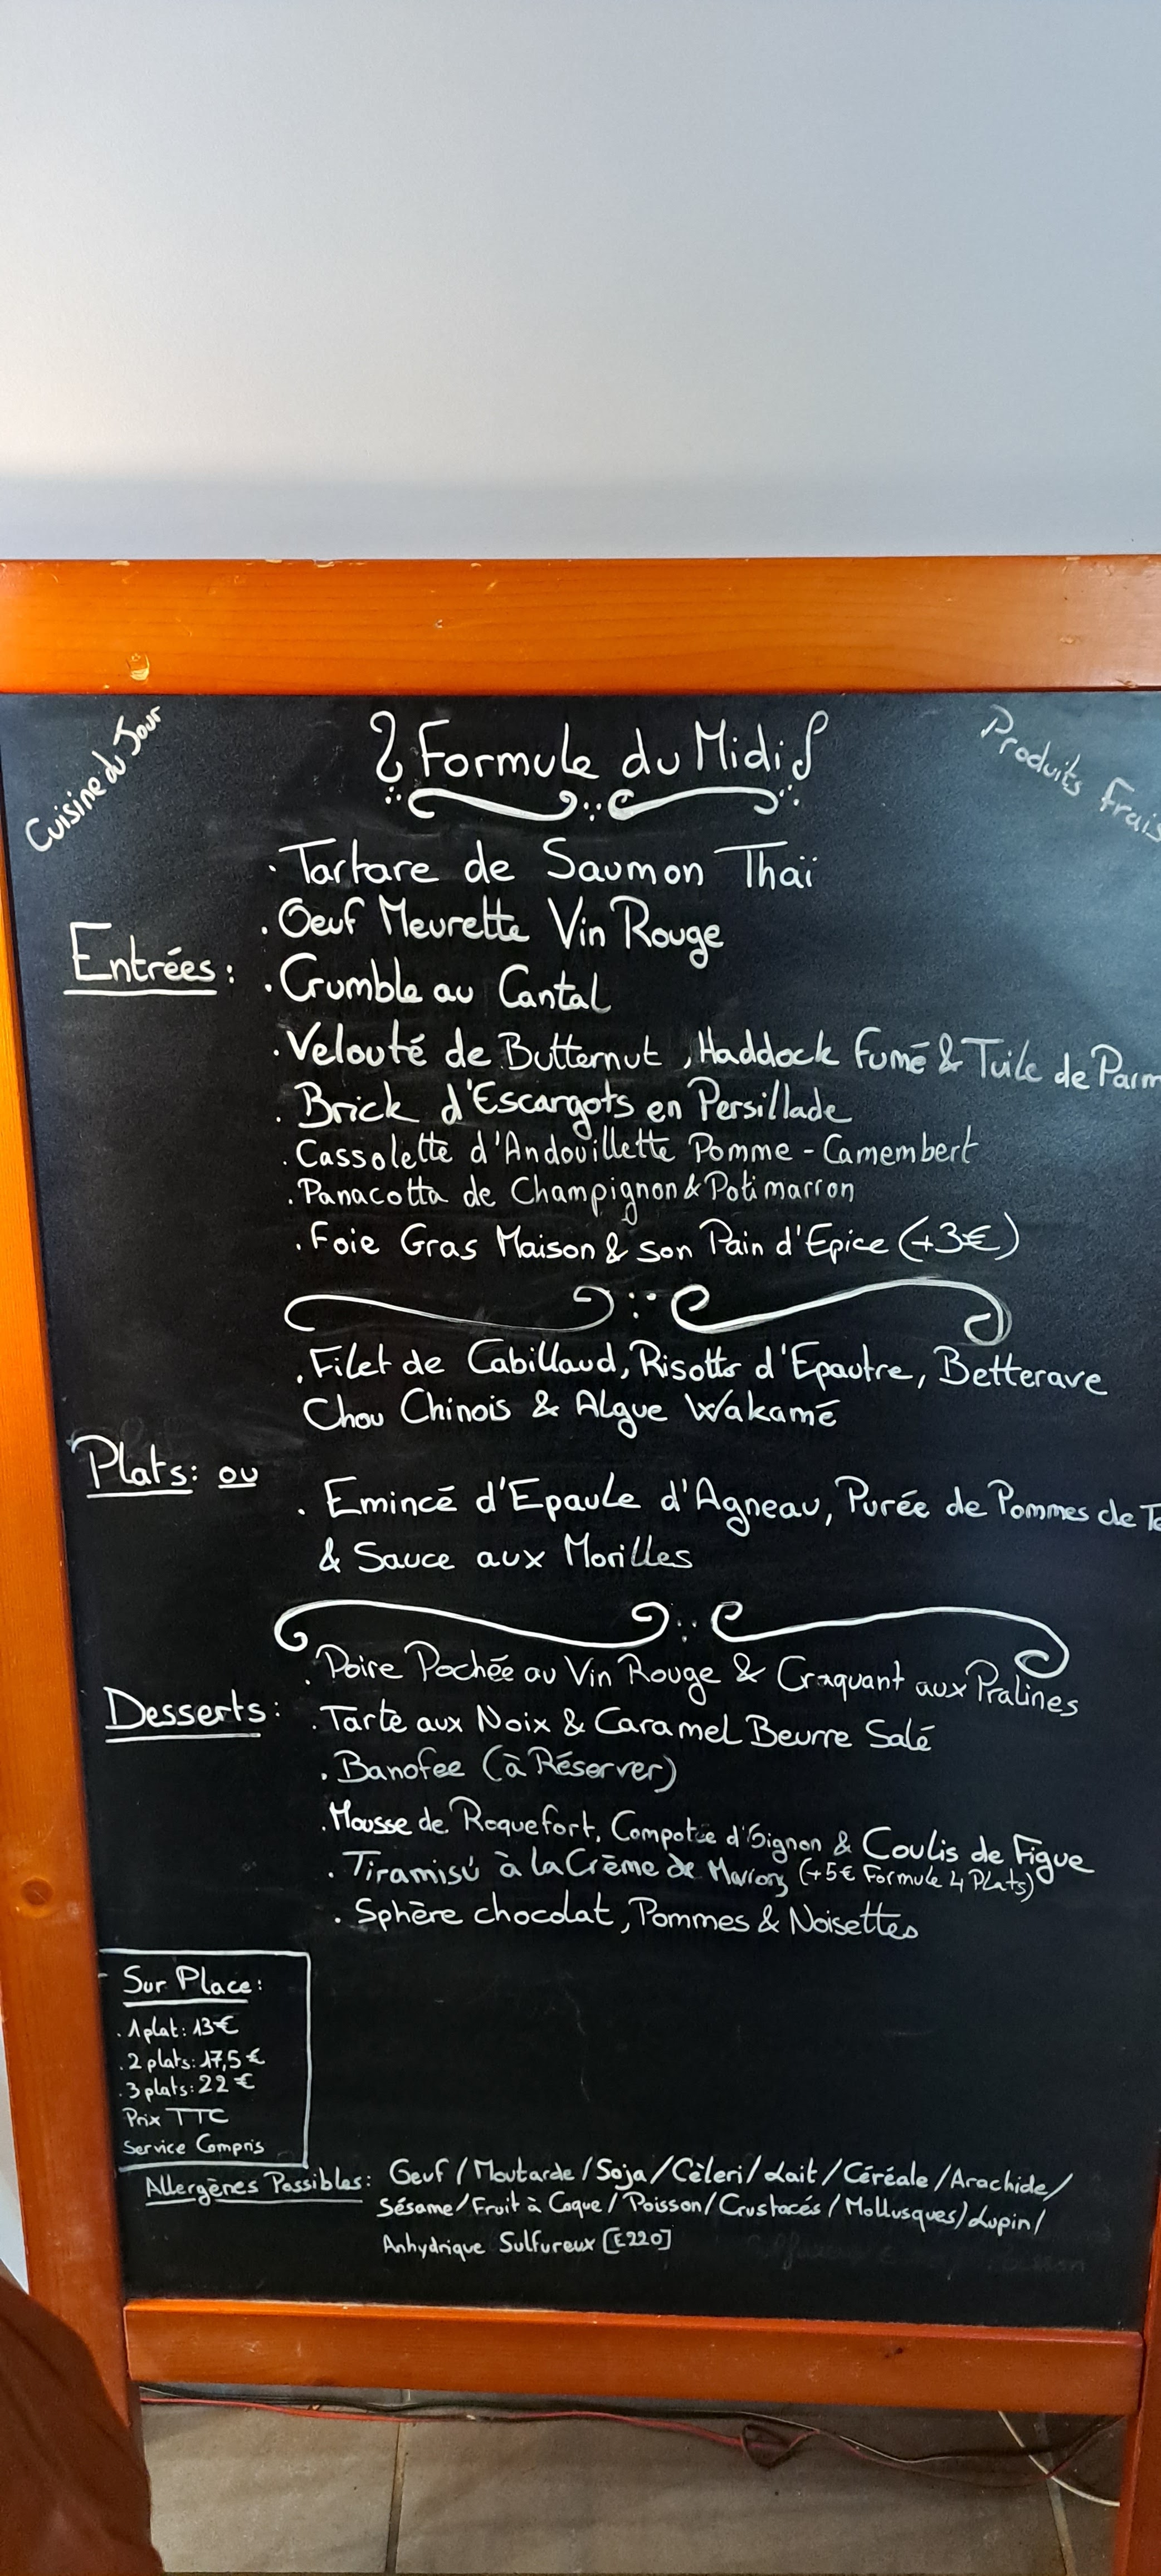 Cuisine du Jour
Produits Frais
Formule du Midi
Entrées:
. Tartare de Saumon Thaï
. Oeuf Meurette Vin Rouge
. Crumble au Cantal
. Velouté de Butternut, Haddock Fumé & Tuile de Parm
. Brick d'Escargots en Persillade
. Cassolette d'Andouillette Pomme - Camembert
. Panacotta de Champignon & Potimarron
. Foie Gras Maison & son Pain d'Epice (+3€)
Plats: ou
. Filet de Cabillaud, Risotto d'Epautre, Betterave
Chou Chinois & Algue Wakamé
. Emincé d'Epaule d'Agneau, Purée de Pommes de Te
& Sauce aux Morilles
Desserts:
. Poire Pochée au Vin Rouge & Craquant aux Pralines
. Tarte aux Noix & Caramel Beurre Salé
. Banofee (à Réserver)
. Mousse de Roquefort, Compotée d'Oignon & Coulis de Figue
(+5€ Formule 4 Plats)
. Tiramisù à la Crème de Marrons
. Sphère chocolat, Pommes & Noisettes
Sur Place:
. 1 plat: 13€
. 2 plats: 17,5€
. 3 plats: 22€
Prix TTC
Service Compris
Allergènes Possibles: Oeuf / Moutarde / Soja / Cèleri / Lait / Céréale / Arachide /
Sésame / Fruit à Coque / Poisson / Crustacés / Mollusques) Lupin /
Anhydrique Sulfureux [E220]